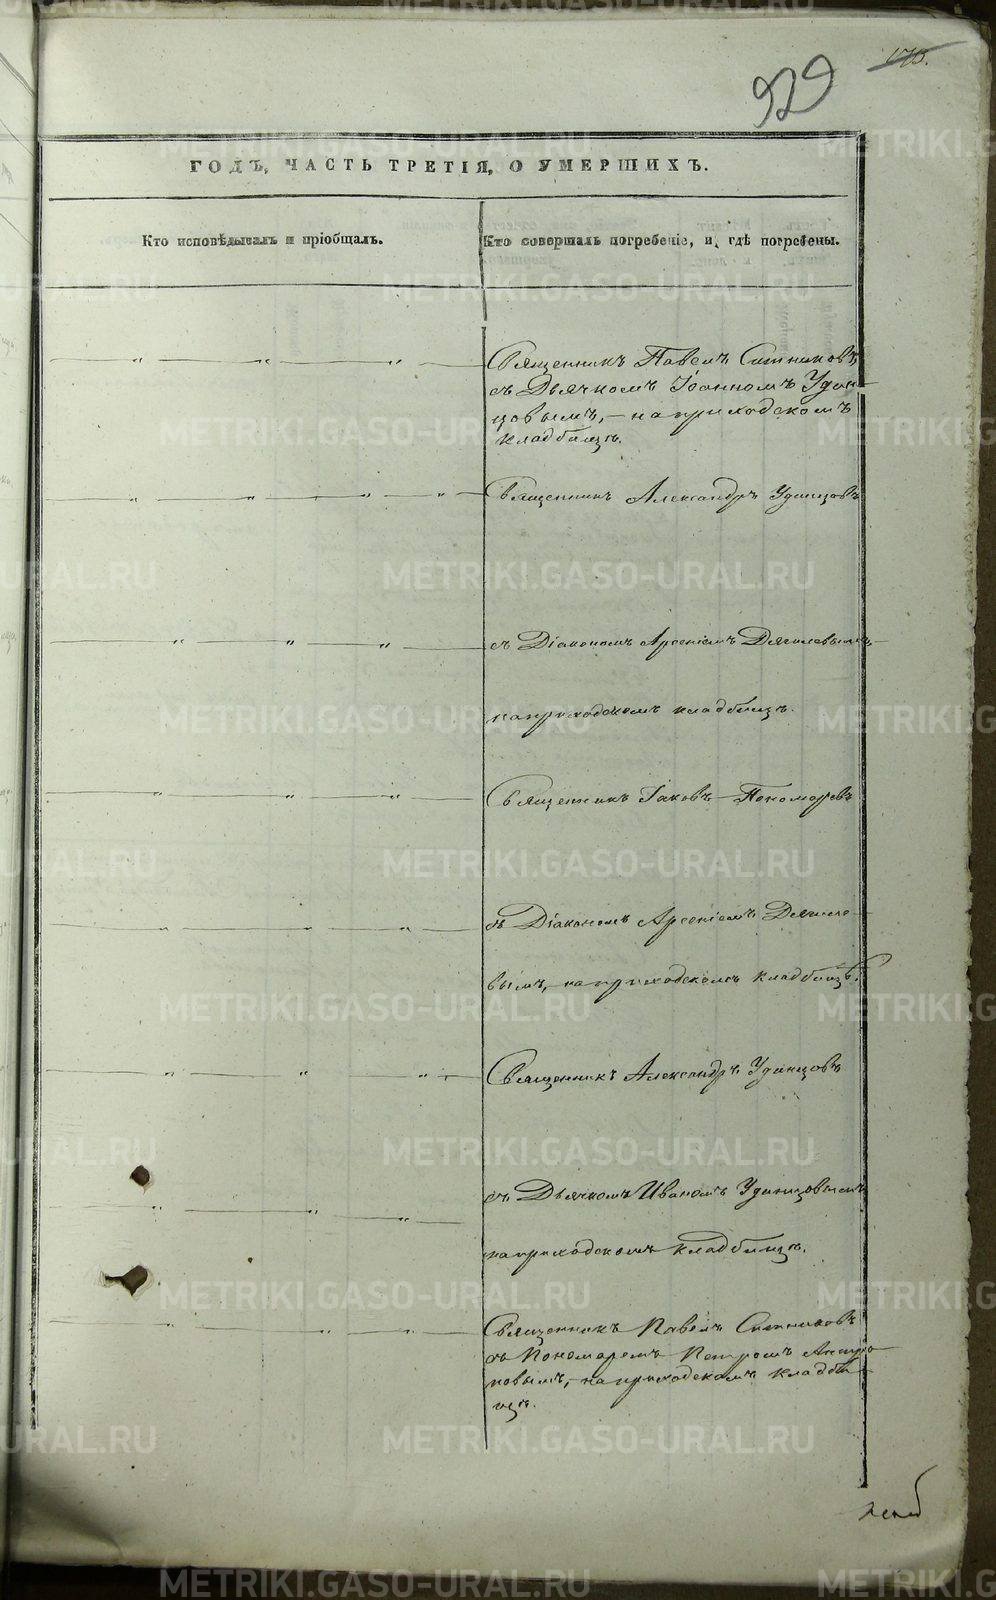 170.
929
ГОДЪ, ЧАСТЬ ТРЕТІЯ, О УМЕРШИХЪ.
Кто исповѣдывалъ и пріобщалъ.
Кто совершалъ погребеніе, и гдѣ погребены.
Священникъ Павелъ Ситниковъ,
съ Дьячкомъ Іоанномъ Удин-
цовымъ, - на приходскомъ
кладбищѣ.
Священникъ Александръ Удинцовъ
съ Діакономъ Арсеніемъ Дягилевымъ
на приходскомъ кладбищѣ.
Священникъ Іаковъ Пономаревъ
съ Діакономъ Арсеніемъ Дягиле-
вымъ, на приходскомъ кладбищѣ.
Священникъ Александръ Удинцовъ
съ Дьячкомъ Иваномъ Удинцовымъ
на приходскомъ кладбищѣ.
Священникъ Павелъ Ситниковъ
съ Пономаремъ Петромъ
новымъ, - на приходскомъ кладби-
щѣ.
METRIKI.GASO-URAL.RU